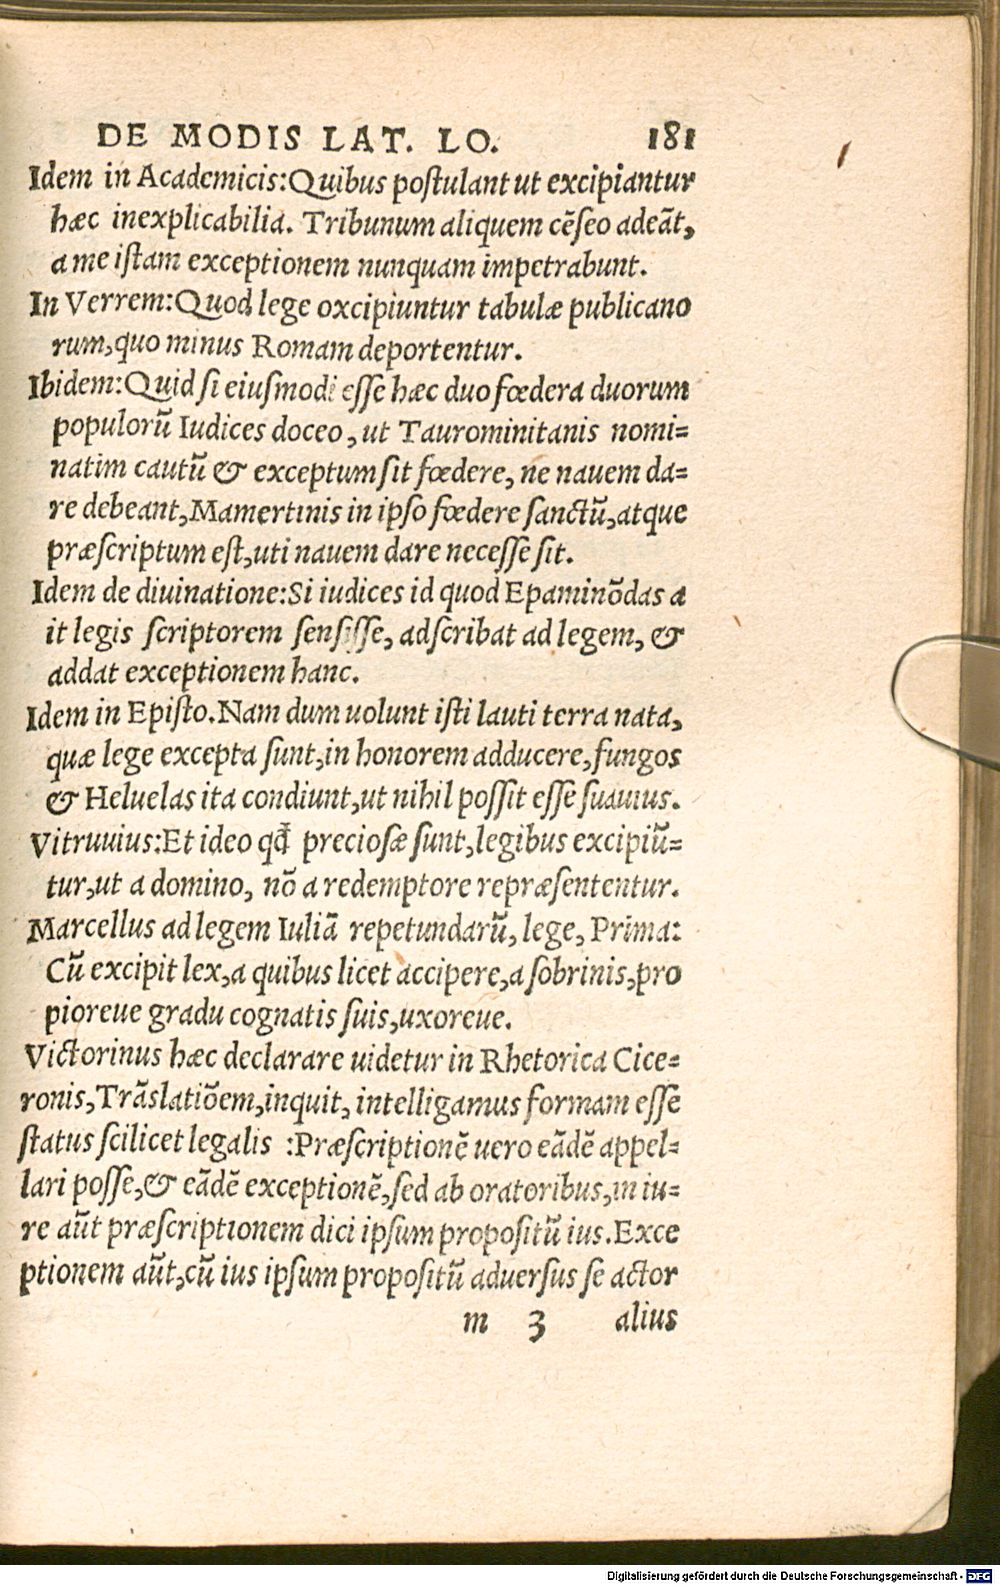 DE MODIS LAT. LO. 181
Idem in Academicis: Quibus postulant ut excipiantur
hæc inexplicabilia. Tribunum aliquem cēseo adeāt,
a me istam exceptionem nunquam impetrabunt.
In Verrem: Quod lege oxcipiuntur tabulæ publicano
rum, quo minus Romam deportentur.
Ibidem: Quid si eiusmodi esse hæc duo fœdera duorum
populorū Iudices doceo, ut Taurominitanis nomi=
natim cautū & exceptum sit fœdere, ne nauem da=
re debeant, Mamertinis in ipso fœdere sanctū, atque
præscriptum est, uti nauem dare necesse sit.
Idem de diuinatione: Si iudices id quod Epaminōdas a
it legis scriptorem sensisse, adscribat ad legem, &
addat exceptionem hanc.
Idem in Episto. Nam dum uolunt isti lauti terra nata,
quæ lege excepta sunt, in honorem adducere, fungos
& Heluelas ita condiunt, ut nihil possit esse suauius.
Vitruuius: Et ideo qđ preciosæ sunt, legibus excipiū=
tur, ut a domino, nō a redemptore repræsententur.
Marcellus ad legem Iuliā repetundarū, lege, Prima:
Cū excipit lex, a quibus licet accipere, a sobrinis, pro
pioreue gradu cognatis suis, uxoreue.
Victorinus hæc declarare uidetur in Rhetorica Cice=
ronis, Trāslatiōem, inquit, intelligamus formam esse
status scilicet legalis : Præscriptionē uero eādē appel=
lari posse, & eādē exceptionē, sed ab oratoribus, in iu=
re aūt præscriptionem dici ipsum propositū ius. Exce
ptionem aūt, cū ius ipsum propositū aduersus se actor
m 3 alius
Digitalisierung gefördert durch die Deutsche Forschungsgemeinschaft - DFG